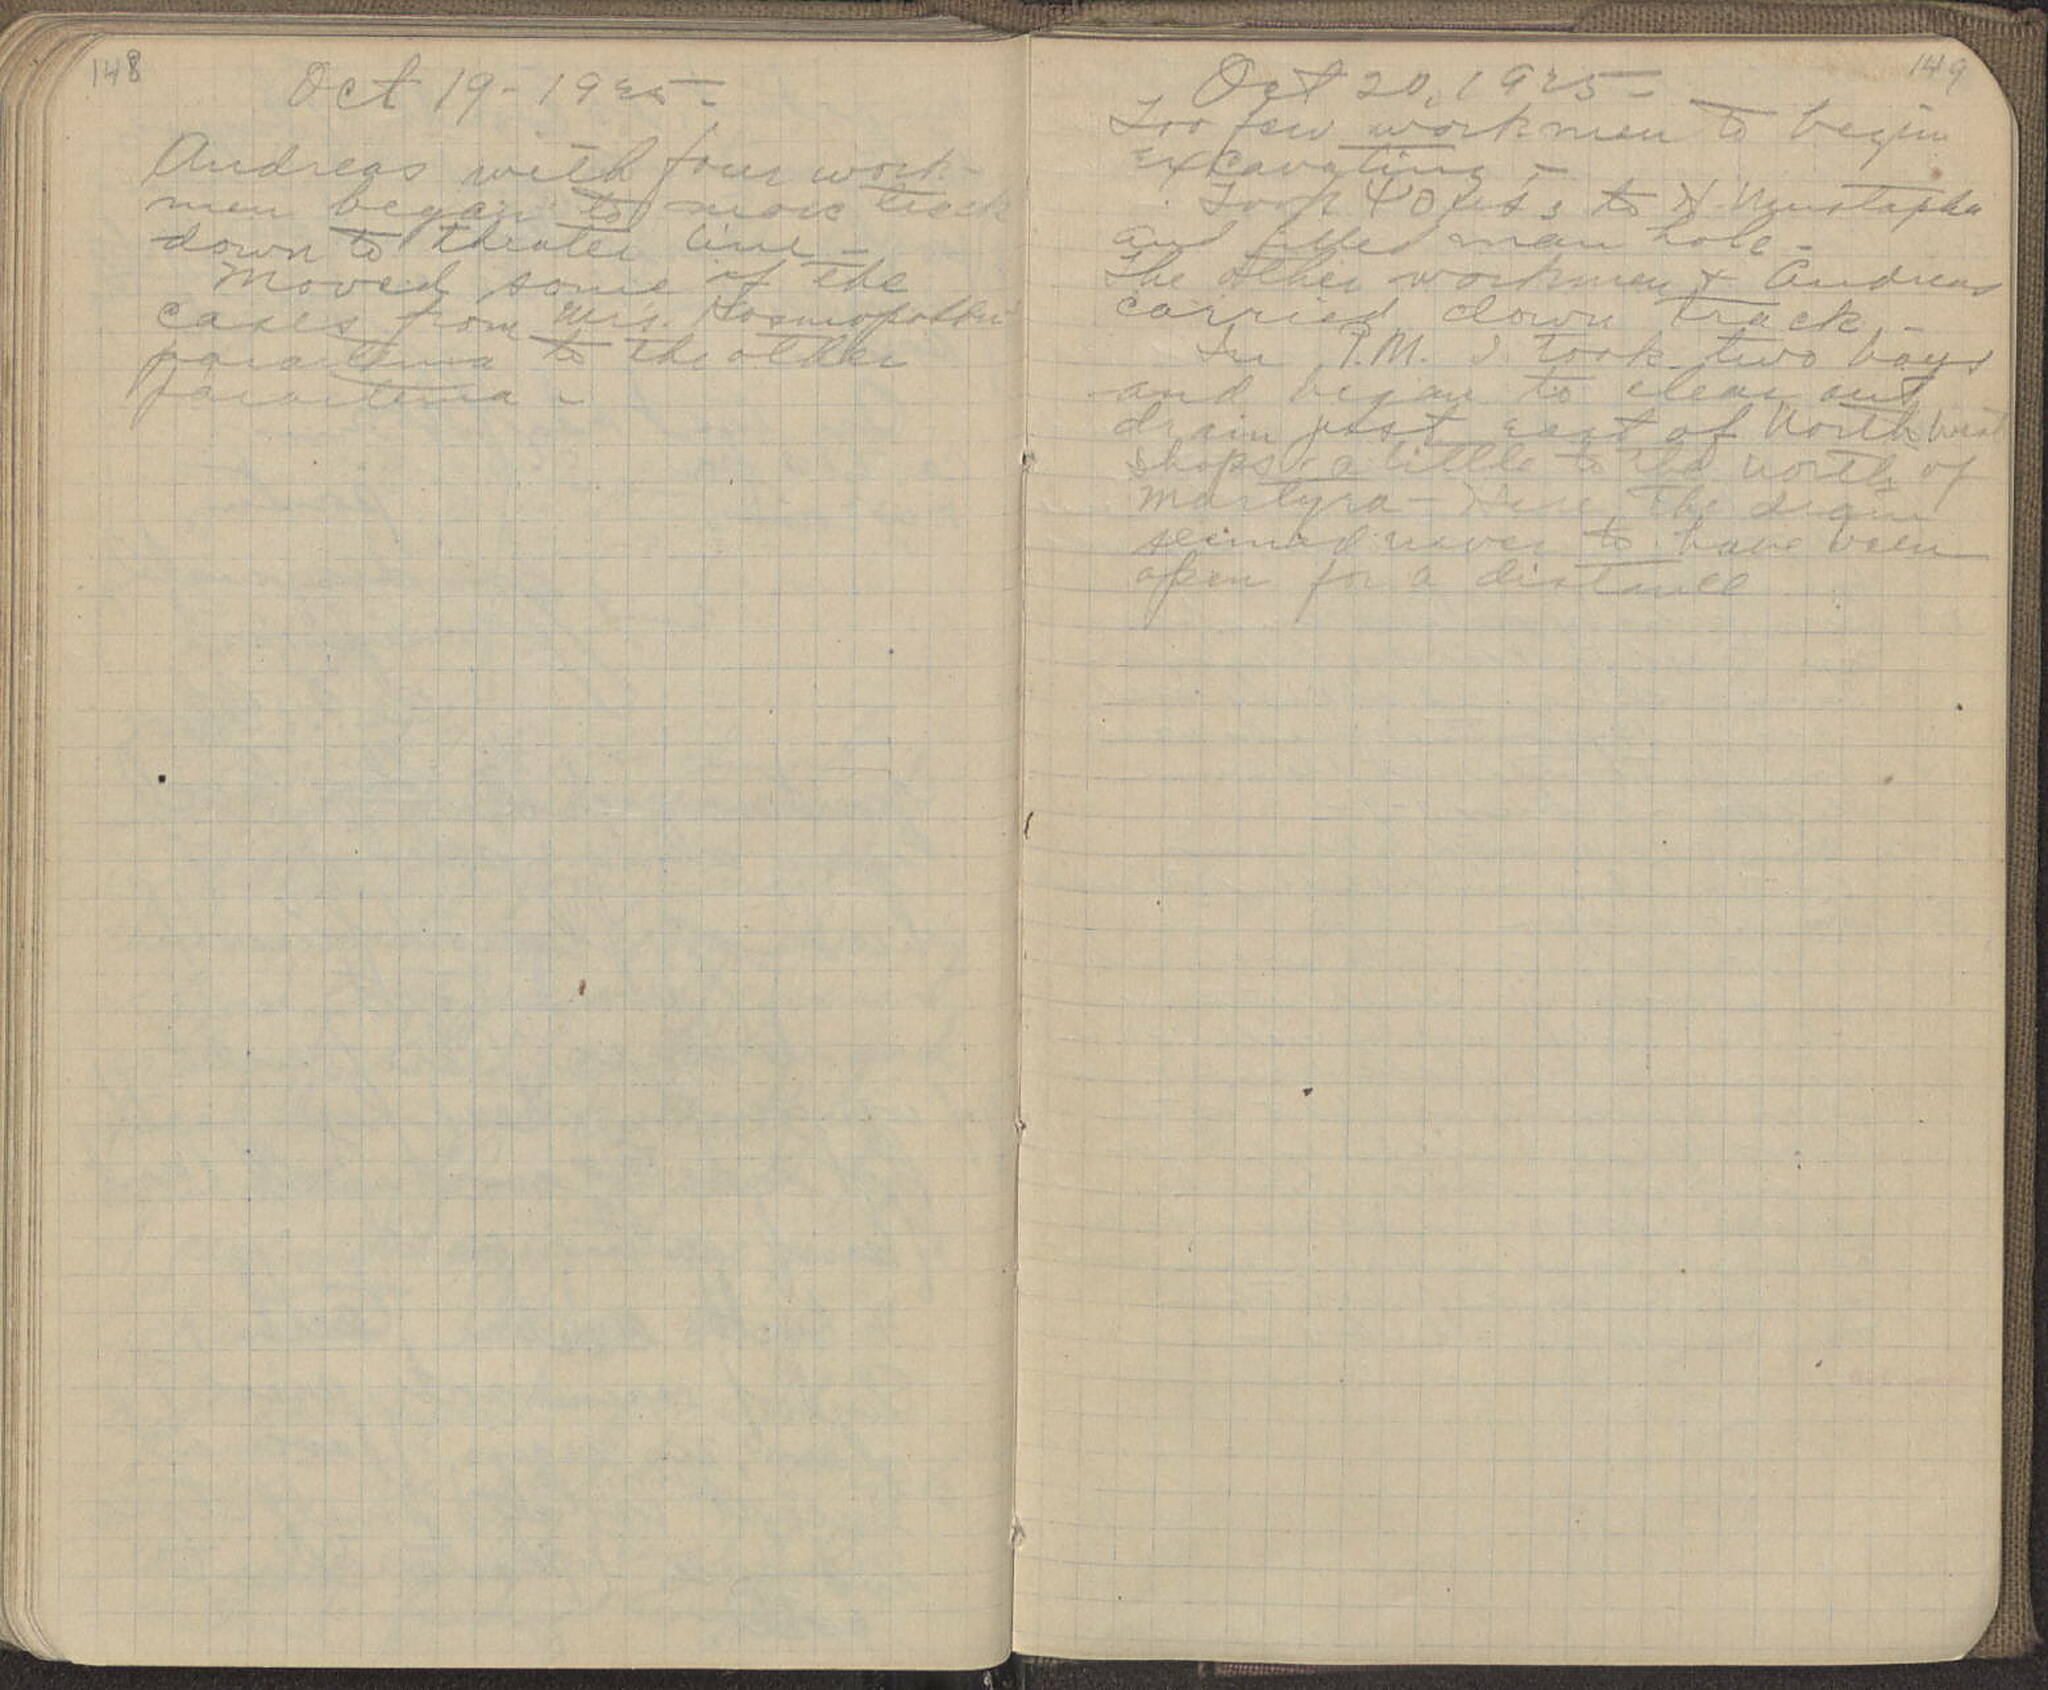 148
Oct 19 - 1925 -
Andreas with four work-
men began to move track
down to theater line -
Moved some of the
cases from Mrs. Kosmopoulou
parartema to the other
parartema -
149
Oct 20, 1925 -
Too few workmen to begin
excavating -
Took 40 to H. Mustapha
and filled man hole -
The other workmen & Andreas
carried down track -
In P.M. I took two boys
and began to clean out
drain just east of North West
shops, a little to the north of
Martyra - Here the drain
seemed never to have been
open for a distance